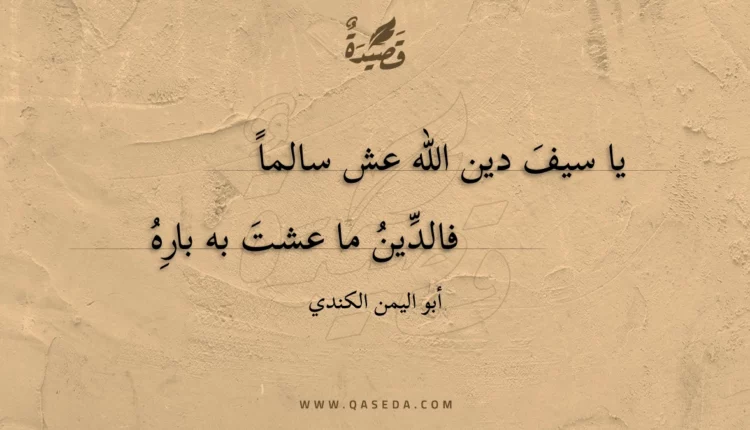 قَصِيدَةٌ
يا سيفَ دين الله عش سالماً
فالدِّينُ ما عشتَ به بارِهُ
أبو اليمن الكندي
WWW.QASEDA.COM